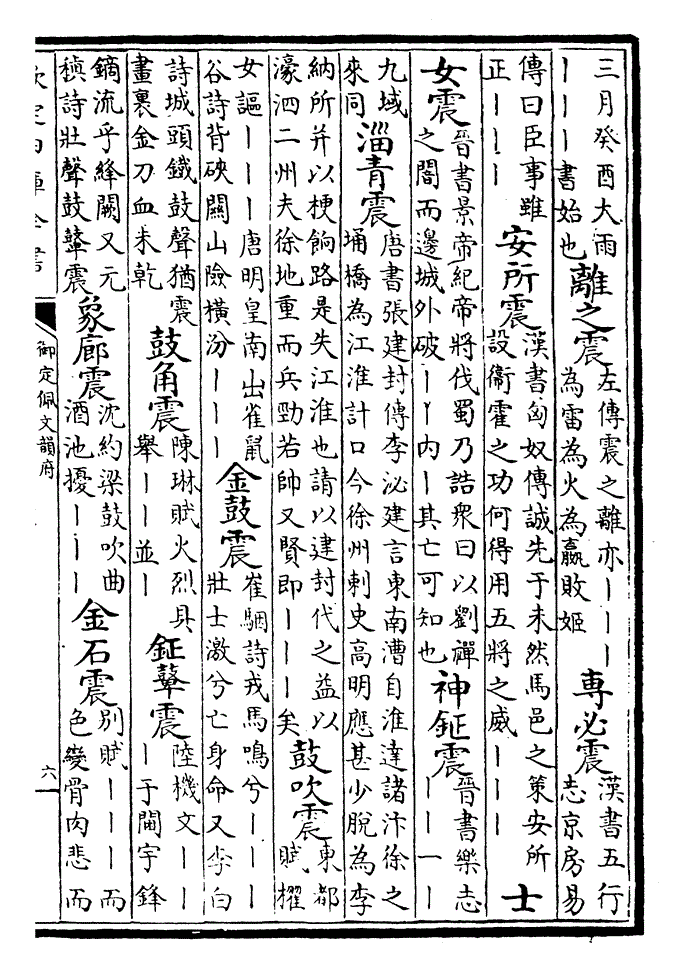 三月癸酉大雨
丨丨丨書始也
離之震
左傳震之離亦丨丨丨
為雷為火為嬴敗姬
専必震
漢書五行
志京房易
傳曰臣事雖
正丨丨丨
安所震
漢書匈奴傳誠先于未然馬邑之策安所
設衞霍之功何得用五將之威丨丨丨
士
女震
晉書景帝紀帝將伐蜀乃諮衆曰以劉禪
之闇而邊城外破丨丨内丨其亡可知也
神鉦震
晉書樂志
丨丨一丨
九域
來同
淄青震
唐書張建封傳李泌建言東南漕自淮達諸汴徐之
埇橋為江淮計口今徐州刺史高明應甚少脫為李
納所并以梗餉路是失江淮也請以建封代之益以
濠泗二州夫徐地重而兵勁若帥又賢即丨丨丨矣
鼓吹震
東都
賦櫂
女謳丨丨丨唐明皇南出雀鼠
谷詩背硤關山險横汾丨丨丨
金鼓震
崔駰詩戎馬鳴兮丨丨丨
壯士激兮亡身命又李白
詩城頭鐵鼓聲猶震
畫裏金刀血未乾
鼓角震
陳琳賦火烈具
舉丨丨並丨
鉦鼙震
陸機文丨丨
丨于閫宇鋒
鏑流乎絳闕又元
稹詩壯聲鼓鼙震
象廊震
沈約梁鼓吹曲
酒池擾丨丨丨
金石震
別賦丨丨丨而
色變骨肉悲而
欽定四庫全書
御定佩文韻府
六